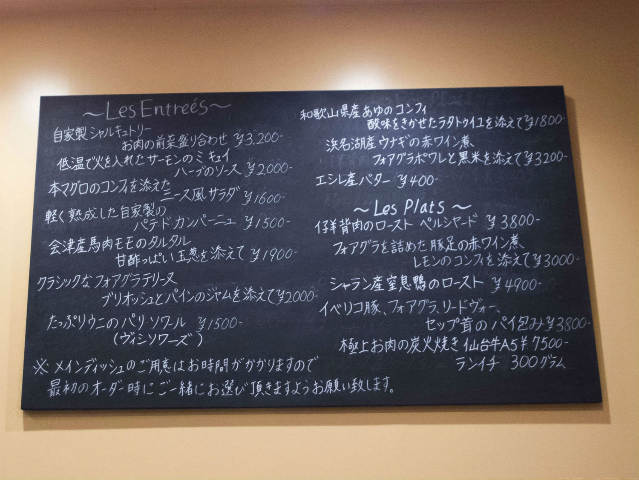 ～Les Entreés～
自家製シャルキュトリー
お肉の前菜盛り合わせ ¥3,200-
低温で火を入れたサーモンのミキュイ
ハーブのソース ¥2000-
本マグロのコンフィを添えた
ニース風サラダ ¥1600-
軽く熟成した自家製の
パテドカンパーニュ ¥1500-
会津産馬肉モモのタルタル
甘酢っぱい玉葱を添えて ¥1900-
クラシックなフォアグラテリーヌ
ブリオッシュとパインのジャムを添えて¥2000-
たっぷりウニのパリソワール ¥1500-
(ヴィシソワーズ)
※ メインディッシュのご用意はお時間がかかりますので
最初のオーダー時にご一緒にお選び頂きますようお願い致します。
和歌山県産あゆのコンフィ
酸味をきかせたラタトゥイユを添えて¥1800-
浜名湖産ウナギの赤ワイン煮
フォアグラポワレと黒米を添えて¥3200-
エシレ産バター ¥400-
～Les Plats～
仔羊背肉のロースト ペルシヤード ¥3800-
フォアグラを詰めた豚足の赤ワイン煮
レモンのコンフィを添えて¥3000-
シャラン産窒息鴨のロースト ¥4900-
イベリコ豚、フォアグラ、リードヴォー、
セップ茸のパイ包み¥3800-
極上お肉の炭火焼き 仙台牛A5¥7500-
ランイチ 300グラム